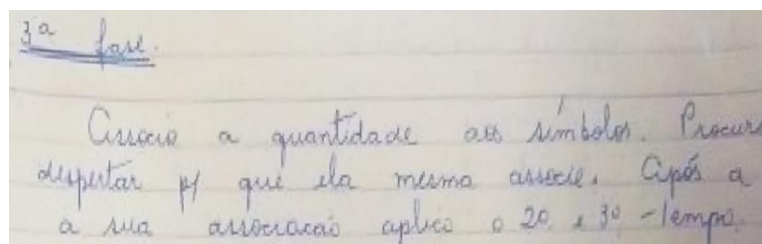 3ª fase.
Associo a quantidade aos símbolos. Procuro
despertar p/ que ela mesma associe. Após a
a sua associacão aplico o 2º e 3º - tempo.